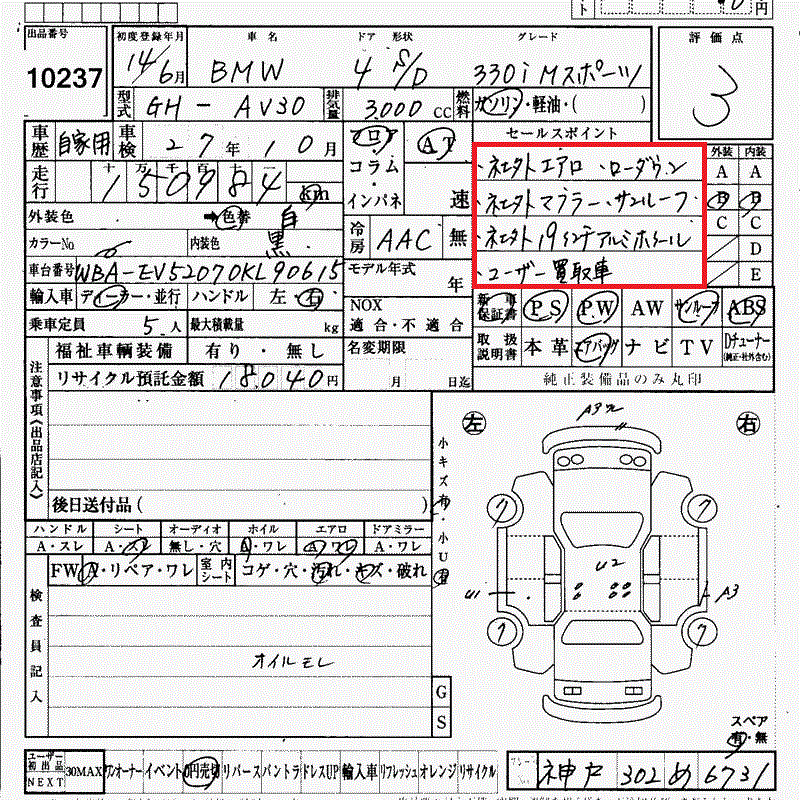 円
出品番号
10237
初度登録年月 車名 ドア 形状 グレード
14/6月 BMW 4 S/D 330i Mスポーツ
評価点
3
型式 GH-AV30 排気量 3,000 CC 燃料 ガソリン・軽油・( )
車歴 自家用 車検 27年10月
フロア コラム・インパネ
AT 速
セールスポイント
・社外エアロ ・ローダウン
・社外マフラー・サンルーフ
・社外19インチアルミホイール
・ユーザー買取車
外装 内装
A A
B B
C C
D
E
走行 十 万 千 百 十 一
150984 km
外装色 →色替 白
カラーNo 内装色 黒
冷房 AAC 無
モデル年式 年
車台番号 WBA-EV52070KL90615
輸入車 ディーラー・並行 ハンドル 左・右
NOX 適合・不適合
乗車定員 5人 最大積載量 kg
新車保証書 PS PW AW サンルーフ ABS
取扱説明書 本革 エアバッグ ナビ TV Dチューナー(純正・社外含む)
純正装備品のみ丸印
福祉車輌装備 有り・無し
名変期限 月 日迄
リサイクル預託金額 18,040円
注意事項《出品店記入》
後日送付品( )
左 右
小キズ有・小U有
A3
U2
U1
A3
7 7
7 7
ハンドル シート オーディオ ホイル エアロ ドアミラー
A・スレ A・スレ 無し・穴 A・ワレ A・ワレ A・ワレ
FW A・リペア・ワレ 室内シート コゲ・穴・汚れ・キズ・破れ
検査員記入
オイルモレ
G
S
スペア
有・無
ユーザー初出品 NEXT 30MAX ワンオーナー イベント 0円売切 リバース バントラ ドレスUP 輸入車 リフレッシュ オレンジ リサイクル
神戸 302 め 6731